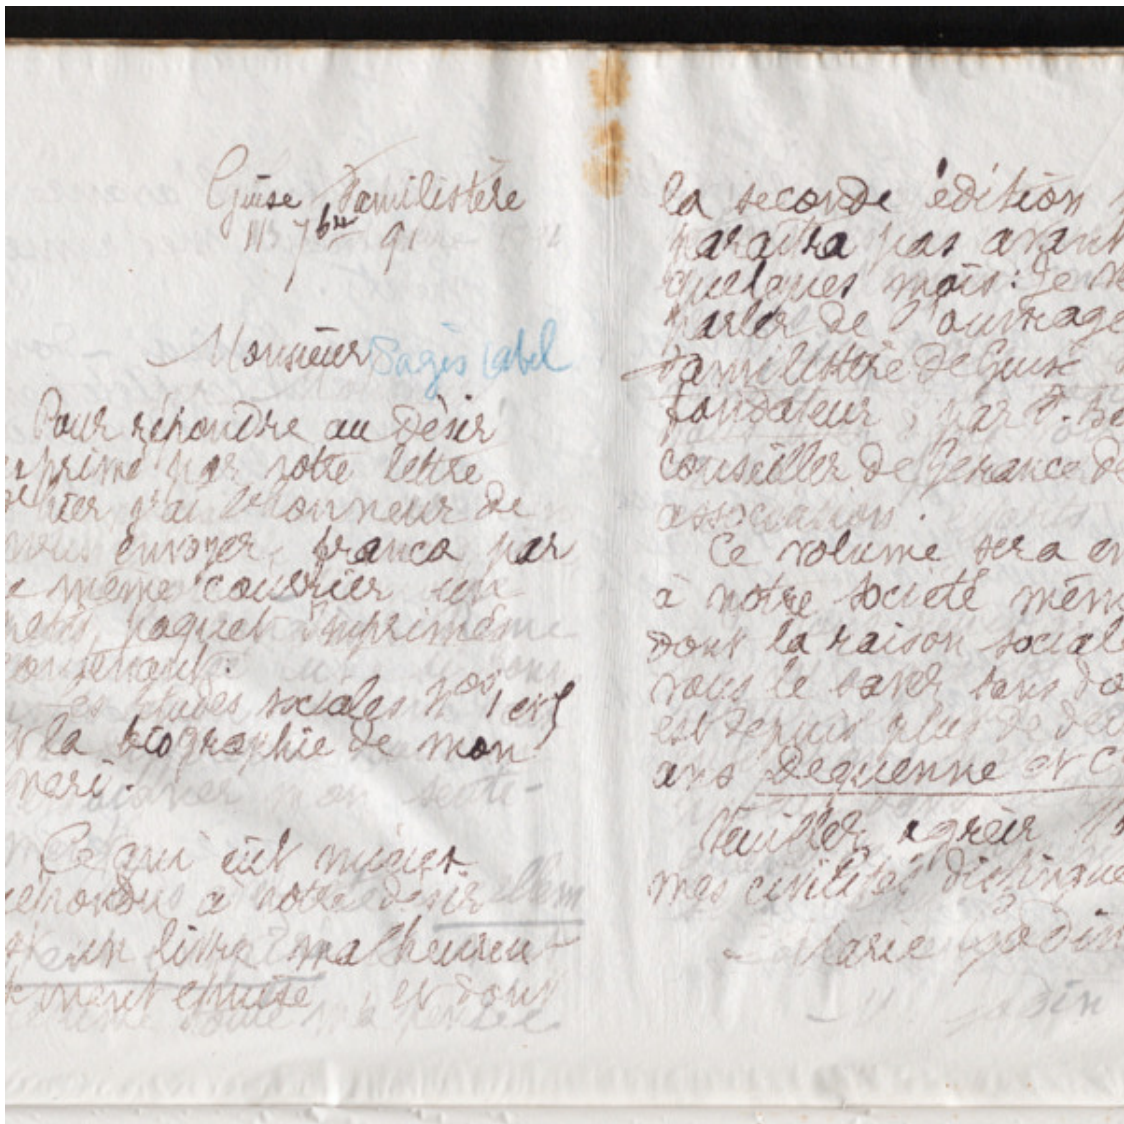 Guise Familistère
11 7bre 91
Monsieur Sagès Label
Pour répondre au désir
exprimé par votre lettre
d'hier j'ai l'honneur de
vous envoyer, franco par
le même courrier un
petit paquet imprimés
contenant:
Les Etudes sociales nos 1 et 5
et la biographie de mon
mari.
Ce qui eût mieux
répondu à votre désir
est un livre malheureu-
sement épuisé, et dont
la seconde édition
paraîtra pas avant
quelques mois: Je
parler de l'ouvrage
Familistère de Guise
fondateur, par
conseiller de Gérance de
association.
Ce volume sera en
à notre société même
dont la raison sociale
vous le savez sans do
est depuis plus de deu
ans Dequenne et C
Veuillez, agréer
mes civilités distingué
Marie Godin